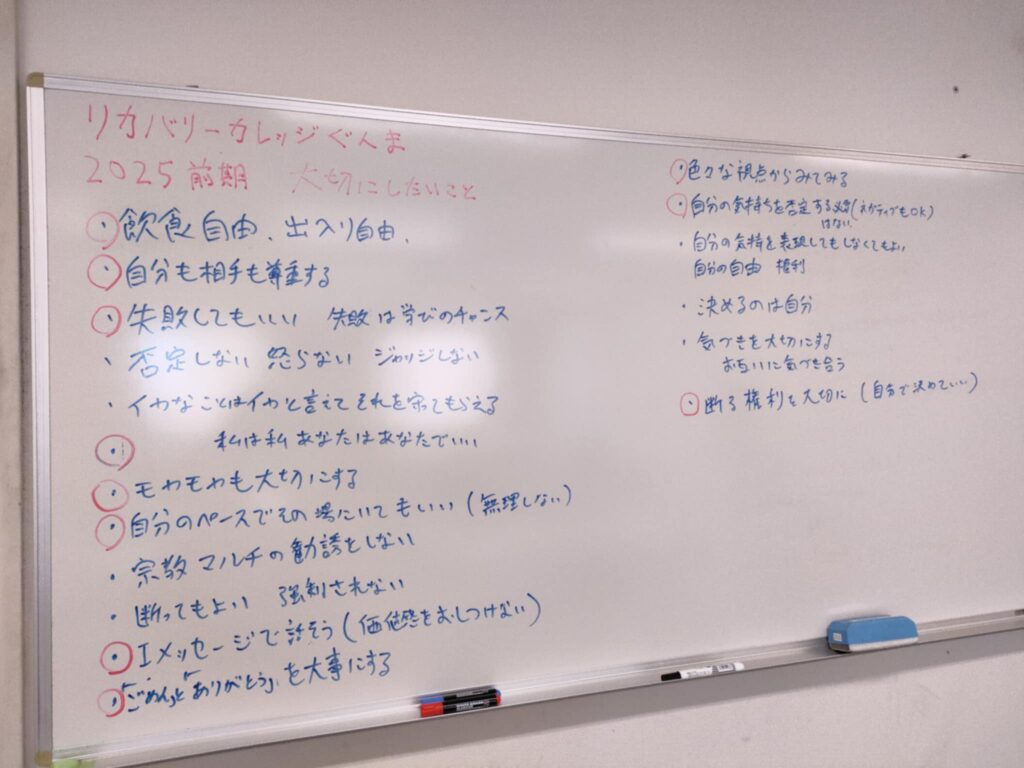 リカバリーカレッジぐんま
2025 前期 大切にしたいこと
・飲食自由、出入り自由、
・自分も相手も尊重する
・失敗してもいい 失敗は学びのチャンス
・否定しない 怒らない ジャッジしない
・イヤなことはイヤと言えて それを守てもらえる
・私は私 あなたはあなたでいい
・モヤモヤも大切にする
・自分のペースでその場にいてもいい (無理しない)
・宗教 マルチの勧誘をしない
・断ってもよい 強制されない
・Iメッセージで話そう (価値感をおしつけない)
・「ごめん」と「ありがとう」を大事にする
・色々な視点からみてみる
・自分の気持ちを否定する必要 (ネガティブもOK)
はない
・自分の気持を表現してもしなくてもよい
自分の自由 権利
・決めるのは自分
・気づきを大切にする
お互いに気づき合う
・断る権利を大切に (自分で決めていい)